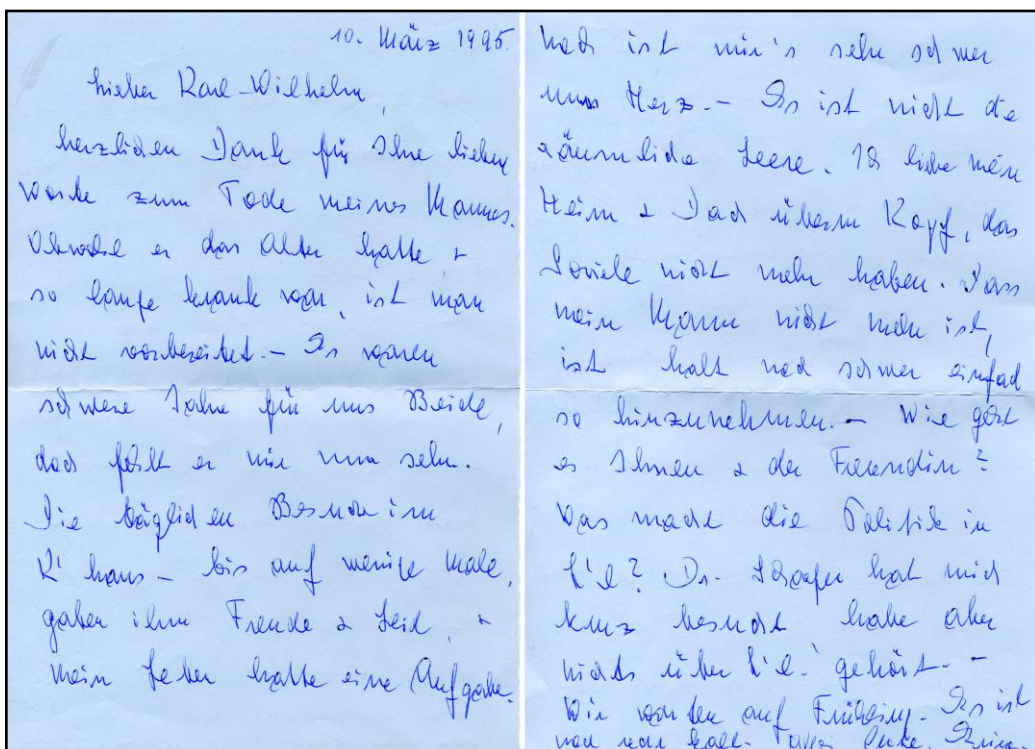 10. März 1995
Lieber Karl-Wilhelm,
herzlichen Dank für Ihre lieben
Worte zum Tode meines Mannes.
Obwohl er das Alter hatte +
so lange krank war, ist man
nicht vorbereitet. – Es waren
schwere Jahre für uns Beide,
doch fehlt er mir nun sehr.
Die täglichen Besuche im
K'haus – bis auf wenige Male,
gaben ihm Freude & Leid, +
mein Leben hatte eine Aufgabe.
noch ist mir's sehr schwer
ums Herz. – Es ist nicht die
räumliche Leere. Ich liebe mein
Heim & Dach überm Kopf, das
Soviele nicht mehr haben. Dass
mein Mann nicht mehr ist,
ist halt noch schwer einfach
so hinzunehmen. – Wie geht
es Ihnen & der Freundin?
Was macht die Politik in
Dr. hat mich
kurz besucht habe aber
nichts über gehört. –
Wir warten auf Frühling. Es ist
noch kalt. Alles Gute.